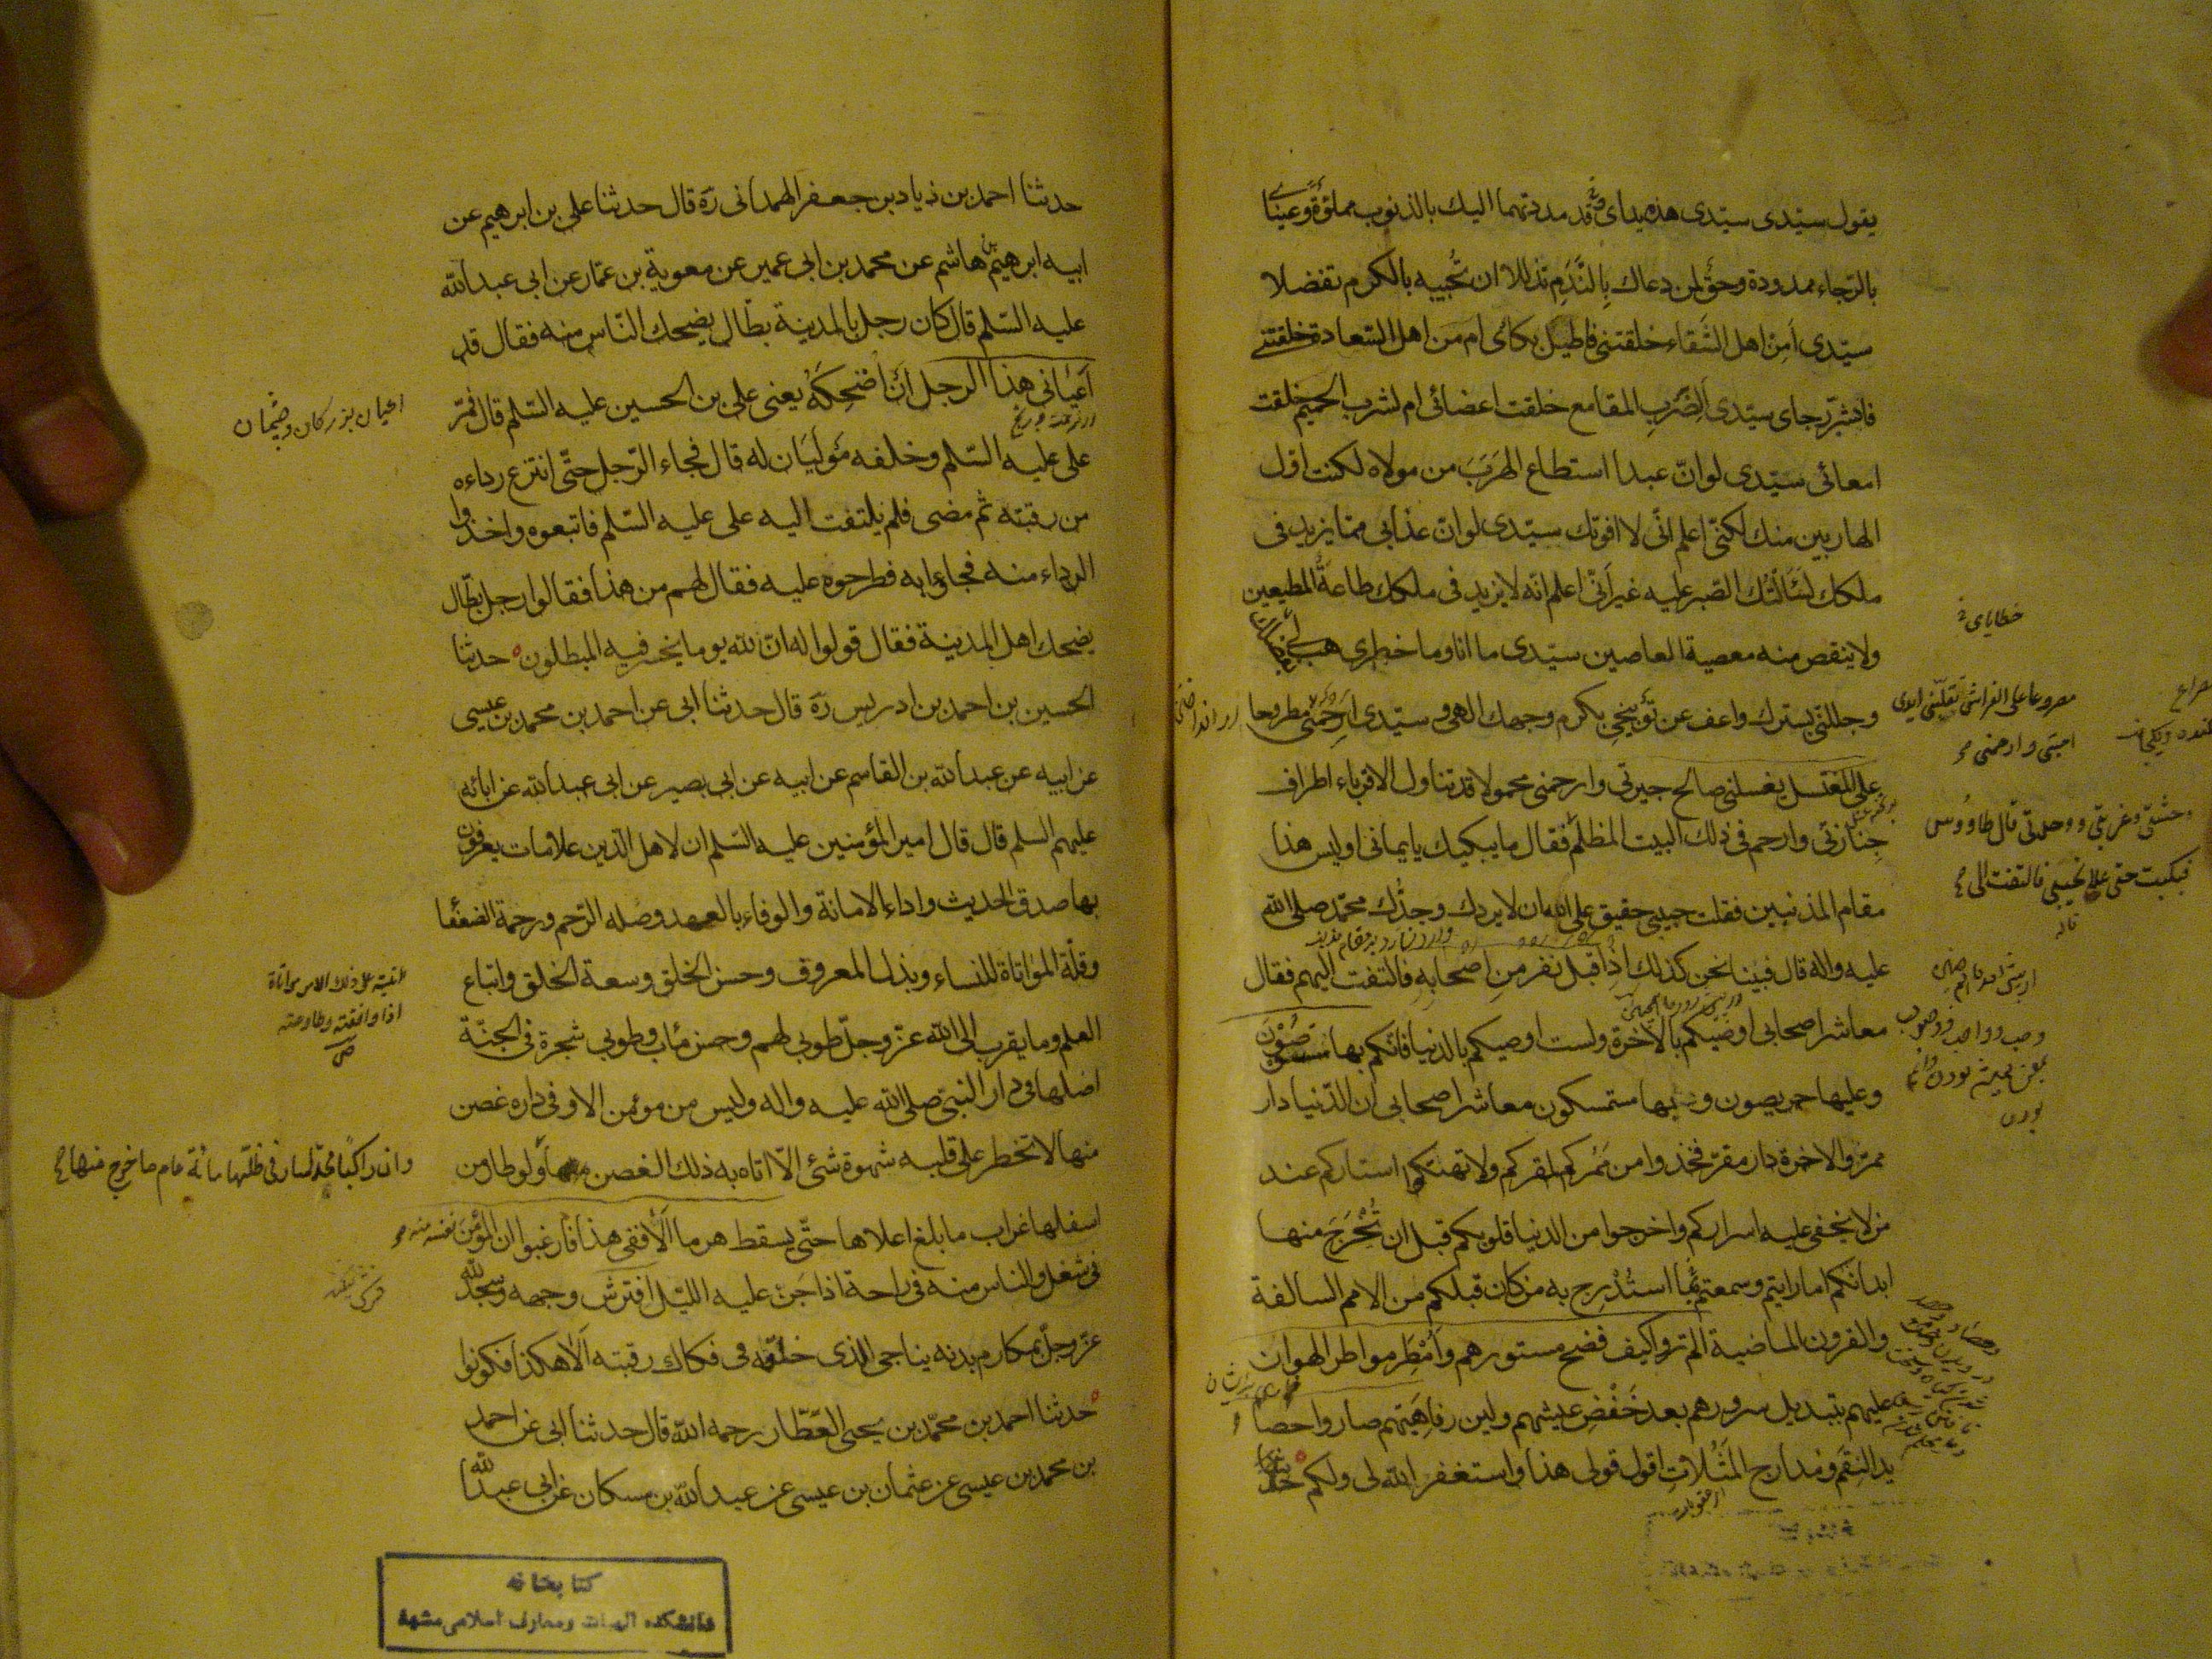 يقول سيّدى سيّدى هذه يداى قد مددتهما اليك بالذنوب مملؤة وعيناى
بالرّجاء ممدودة وحقّ لمن دعاك بِالنَّدَمِ تذللا ان تُجيبه بالكرم تفضلا
سيّدى اَمِنْ اهل الشَّقاء خلقتنى فاطيل بكائى ام من اهل السّعادة خلقتنى
فابشّر رجاى سيّدى اَلِضَرْبِ المقامع خلقت اعضائى ام لشرب الحميم خلقت
امعائى سيّدى لو انّ عبدا استطاع الهَرَبَ من مولاه لكنت اوّل
الهاربين منك لكنّى اعلم انّى لا افوتك سيّدى لو انّ عذابى ممّا يزيد فى
ملكك لَسَأَلْتُكَ الصّبر عليه غير اَنّى اعلم انّه لا يزيد فى ملكك طاعةُ المطيعين
ولا ينقص منه معصية العاصين سيّدى ما انا وما خطرى هب لى
خطاياى
وجلّلنى بسترك واعف عن تَوْبيخى بكرم وجهك الهى و سيّدى اِرْحَمْنى مطروحا
مصروعا على الفراش تقلّبنى ايدى
احبّتى وارحمنى
على المغتسل يغسلنى صالح جيرتى وارحمنى محمولا قد تناول الاقرباء اطراف
جنازتى وارحم فى ذلك البيت المظلم فقال ما يبكيك يا يمانى اوليس هذا
وحشتى وغربتى ووحدتى قال طاووس
فبكيت حتى علا نحيبى فالتفت الى
مقام المذنبين فقلت حبيبى حقيق على الله ان لا يردك وجدُّك محمّد صلى الله
عليه واله قال فبينا نحن كذلك اِذْ اَقبل نفر مِنْ اَصْحابِهِ فالتفت اليهم فقال
معاشر اصحابى اوصيكم بالاخرة ولست اوصيكم بالدنيا فانّكم بها
وعليها حريصون وبها مستمسكون معاشر اصحابى ان الدّنيا دار
ممرّ والاخرة دار مقرّ فخذوا من ممرّكم لمقركم ولا تهتكوا استاركم عند
من لا يخفى عليه اسراركم واخرجوا من الدنيا قلوبكم قبل ان تُخْرَجَ منها
ابدانكم اما رايتم وسمعتم بما اسْتُدْرِجَ به من كان قبلكم من الامم السالفة
والقرون الماضية الم تروا كيف فضح مستورهم وَاَمْطَرَ مواطر الهوان
عليهم بتبديل سرورهم بعد خَفْضِ عيشهم ولين رفاهيّتهم صاروا حصائد
النِقَم ومدارج المَثُلاتِ اقول قولى هذا واستغفر الله لى ولكم
حدثنا احمد بن زياد بن جعفر الهمدانى ره قال حدثنا على بن ابرهيم عن
ابيه ابرهيم بن هاشم عن محمد بن ابى عمير عن معوية بن عمّار عن ابى عبد الله
عليه السّلم قال كان رجل بالمدينة بطّال يضحك النّاس منه فقال قد
اَعيانى هذا الرجل اَنْ اُضْحِكَهُ يعنى على بن الحسين عليه السّلم قال فمّر
اعيان بزركان وچشمان
على عليه السّلم وخلفه مَوْلَيَان له قال فجاء الرّجل حتّى انتزع رداءه
من رقبته ثم مضى فلم يلتفت اليه على عليه السّلم فاتبعوه واخذوا
الرداء منه فجاءوا به فطرحوه عليه فقال لهم من هذا فقالوا رجل بطّال
يضحك اهل المدينة فقال قولوا له انّ لله يوما يخسر فيه المبطلون حدثنا
الحسين بن احمد بن ادريس ره قال حدثنا ابى عن احمد بن محمد بن عيسى
عن ابيه عن عبد الله بن القاسم عن ابيه عن ابى بصير عن ابى عبد الله عن ابائه
عليهم السلم قال قال امير المؤمنين عليه السّلم ان لاهل الدّين علامات يعرفون
بها صدق الحديث واداء الامانة والوفاء بالعهد وصله الرّحم ورحمة الضعفا
وقلّة المواتاة للنساء وبذل المعروف وحسن الخلق وسعة الخلق واتباع
اتيته على ذلك الامر مواتاة
اذا وافقته وطاوعته
ص
العلم وما يقرب الى الله عزّ وجلّ طوبى لهم وحسن مئاب وطوبى شجرة فى الجنّة
اصلها فى دار النبىّ صلى الله عليه واله وليس من مؤمن الا وفى داره غصن
منها لا تخطر على قلبه شهوة شئ الّا اتاه به ذلك الغصن ولو طار من
وان راكبا مجدّا سار فى ظلّها مائة عام ما خرج منها
اسفلها غراب ما بلغ اعلاها حتّى يسقط هرما اَلا ففى هذا فارغبوا ان المؤمن نفسه منه
فى شغل والناس منه فى راحة اذا جَنّ عليه الليّل افترش وجهه وسجد لله
عزّ وجلّ بمكارم بدنه يناجى الذى خلقه فى فكاك رقبته اَلا هكذا فكونوا
حدثنا احمد بن محمّد بن يحيى العَطّار رحمه الله قال حدثنا ابى عن احمد
بن محمد بن عيسى عن عثمان بن عيسى عن عبد الله بن مسكان عن ابى عبد الله
كتابخانه
دانشكده الهيات ومعارف اسلامى مشهد